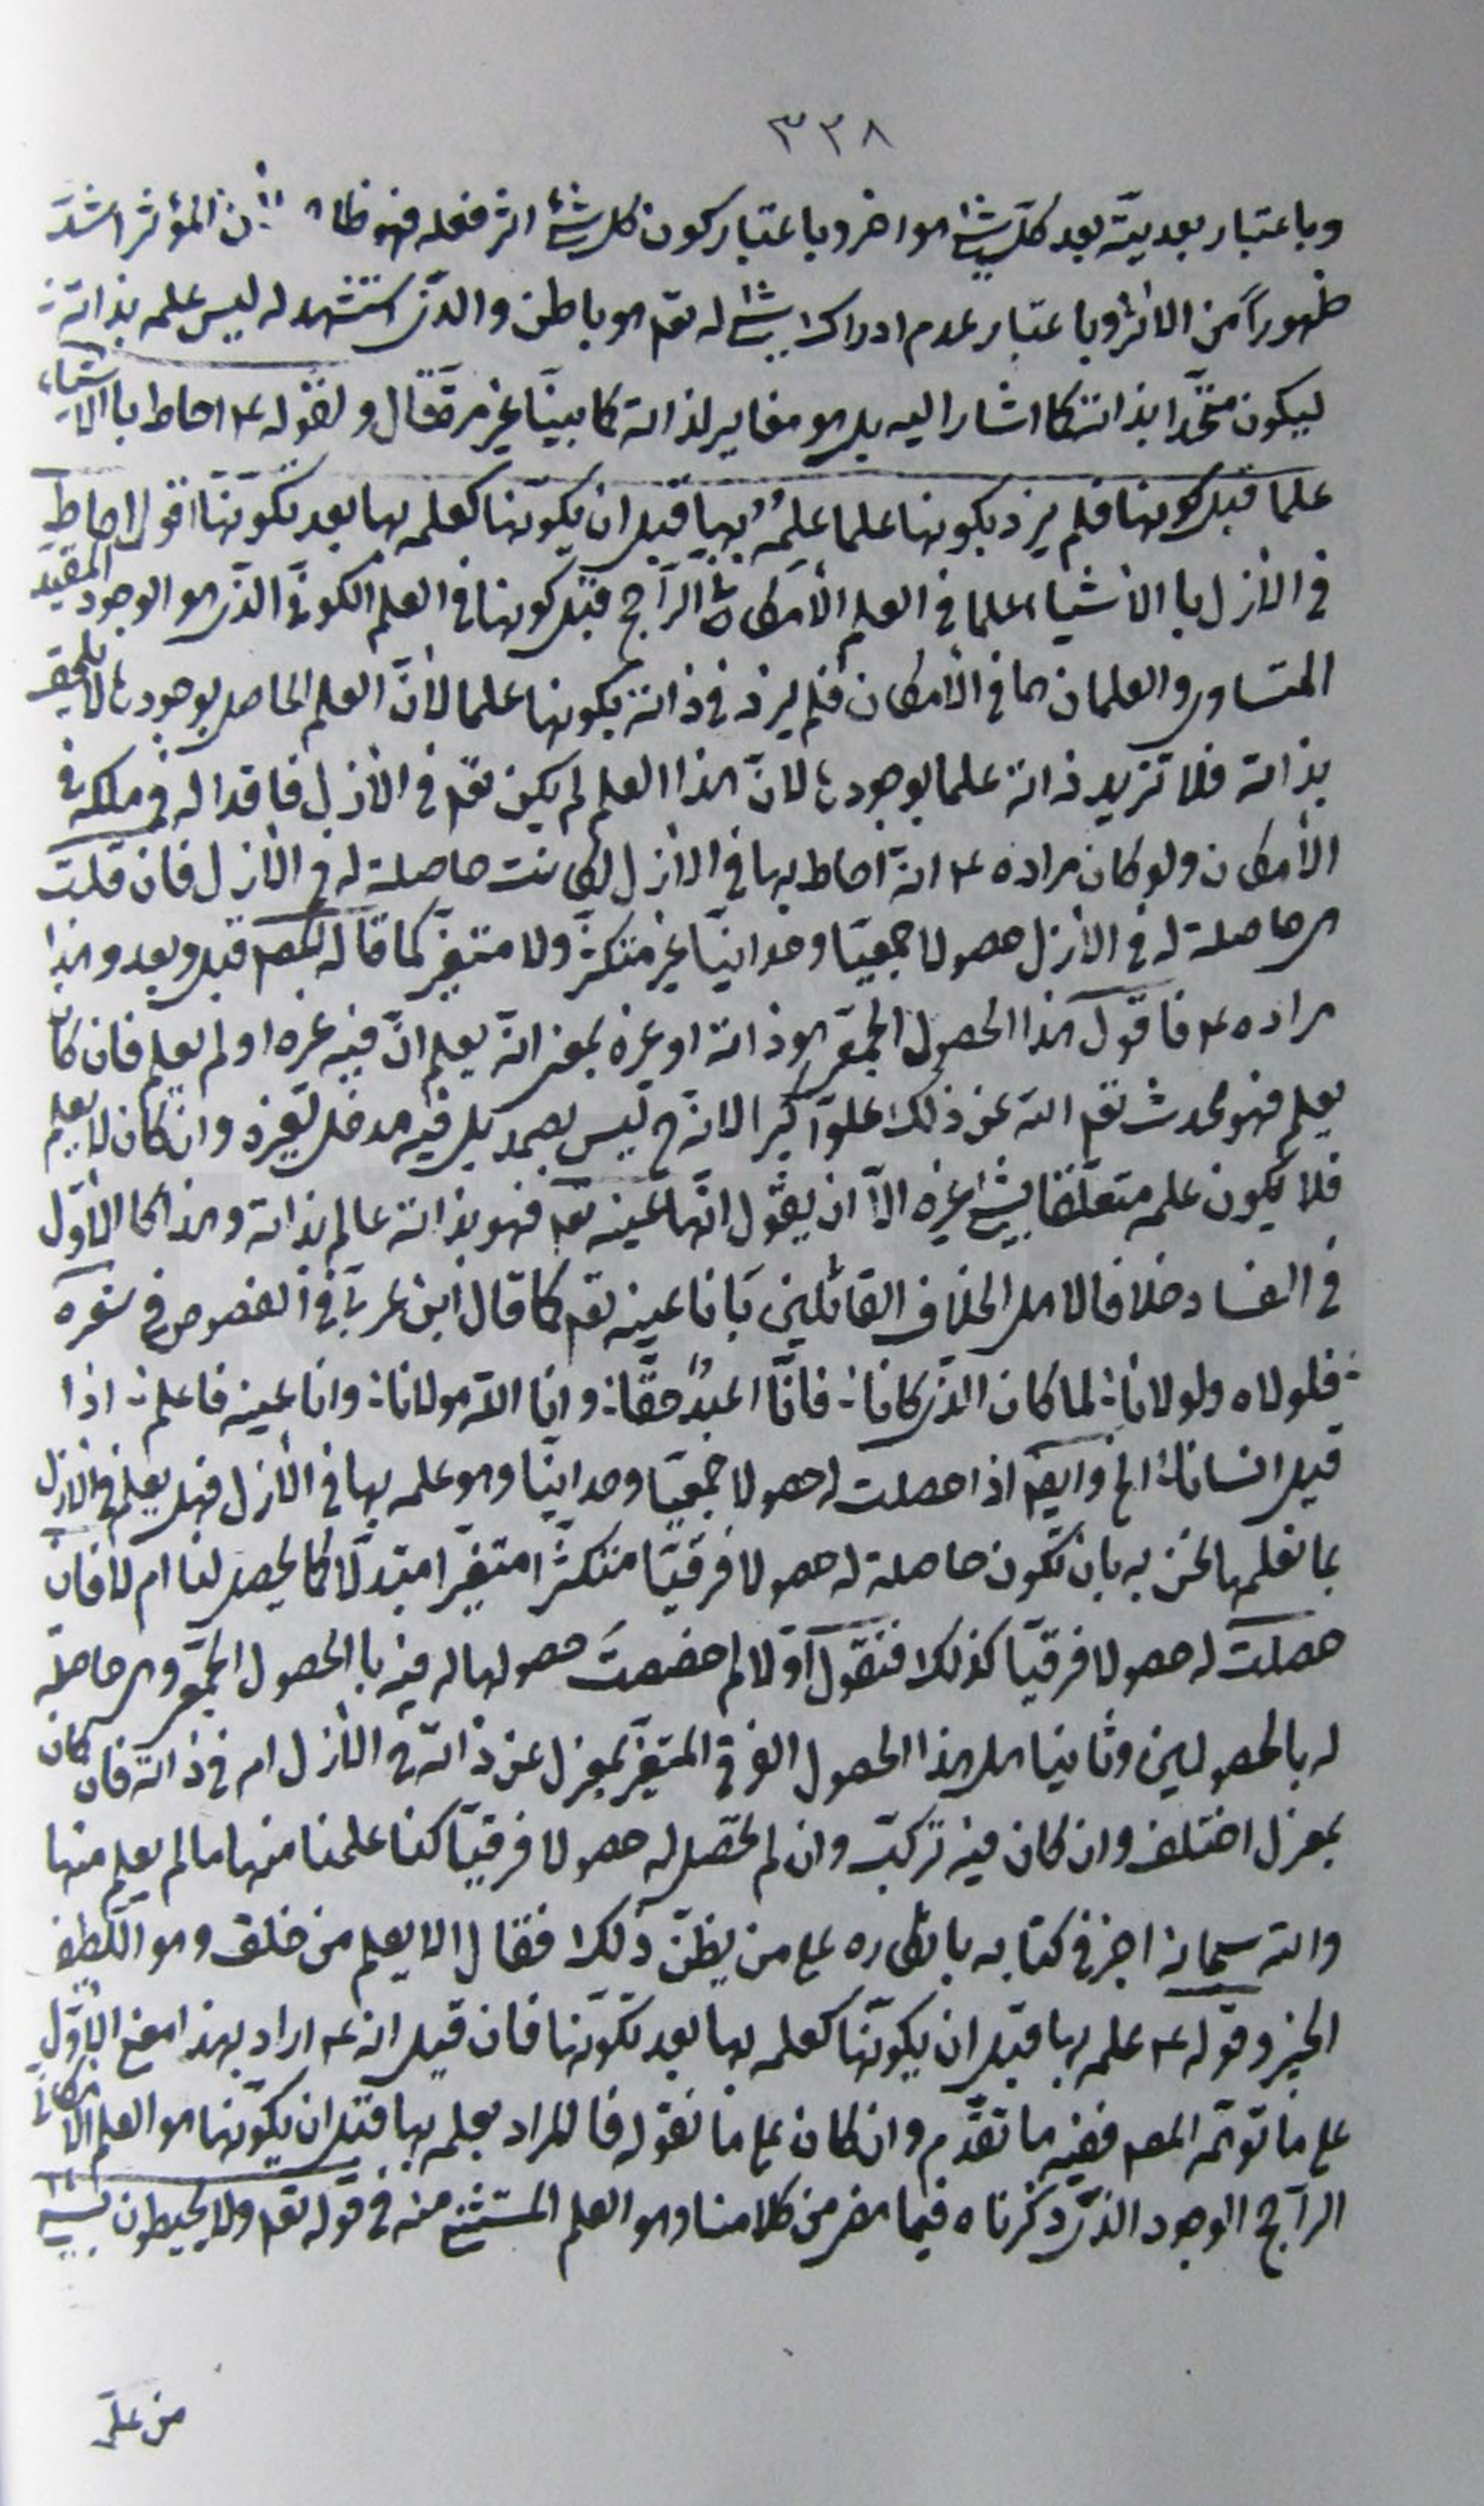 ٣٣٨
وباعتبار بعديته بعد كل شئ هو اخر وباعتبار كون كل شئ اثر فعله فهو ظاهر لان المؤثر اشد
ظهوراً من الاثر وباعتبار عدم ادراك شئ له تعـ هو باطن والذى استشهد له ليس علمه بذاته
ليكون متحدا بذاته كما اشار اليه بل هو مغاير لذاته كما بينا غير مرة قال وبقوله ع احاط باالاشياء
علما قبل كونها فلم يزد بكونها علما علمه بها قبل ان يكونها كعلمه بها بعد تكونها اقول احاط
فى الازل باالاشياء علما فى العلم الامكانى الراجح قبل كونها فى العلم الكونى الذى هو الوجود المقيد
المتساوى والعلمان هما فى الامكان فلم يزد فى ذاته بكونها علما لان العلم الحاصل بوجودها لا يلحق
بذاته فلا تزيد ذاته علما بوجودها لان هذا العلم لم يكن تعـ فى الازل فاقدا له فى ملكه فى
الامكان ولو كان مراده ع انه احاط بها فى الازل لكانت حاصلة له فى الازل فان قلت
هى حاصلة له فى الازل حصولا جمعيا وحدانيا غير متكثر ولا متغير كما قاله المصـ قبل وبعد وهذا
مراده ع فاقول هذا الحصول الجمعى هو ذاته او غيره بمعنى انه يعلم ان فيه غيره او لم يعلم فان كان
يعلم فهو محدث تعـ الله عن ذلك علوا كبيرا لانه ح ليس بصمد بل فيه مدخل لغيره وان كان لا يعلم
فلا يكون علمه متعلقا بشئ غيره الا ان يقول انها عينه تعـ فهو بذاته عالم بذاته وهذا كالاول
فى الفساد خلافا لاهل الخلاف القائلين بانا عينه تعـ كما قال ابن عربى فى الفصوص فى شعره
فلولاه ولولانا ∴ لما كان الذى كانا ∴ فانا اعبد حقا ∴ وانا الله مولانا ∴ وانا عينه فاعلم ∴ اذا
قيل انسانا الخ وايضـ اذا حصلت له حصولا جمعيا وحدانيا وهو علمه بها فى الازل فهل يعلم فى الازل
بما نعلمها نحن به بان تكون حاصلة له حصولا فرقيا متكثرا متغيرا متبدلا كما يحصل لنا ام لا فان
حصلت له حصولا فرقيا كذلك فنقول اولا لم خصصت حصولها له فيه باالحصول الجمعى وهى حاصلة
له بالحصولين وثانيا هل هذا الحصول الفرقى المتغير بمعزل عن ذاته فى الازل ام فى ذاته فان كان
بمعزل اختلف وان كان فيه تركب وان لم تحصل له حصولا فرقيا كنا علمنا منها ما لم يعلم منها
والله سبحانه اخبر فى كتابه بانكاره على من يظن ذلك فقال الا يعلم من خلق وهو اللطيف
الخبير وقوله ع علمه بها قبل ان يكونها كعلمه بها بعد تكونها فان قيل انه ع اراد بهذا معنى الاول
على ما توهمه المصـ ففيه ما تقدم وان كان على ما نقوله فالمراد بعلمه بها قبل ان يكونها هو العلم الامكانى
الراجح الوجود الذى ذكرناه فيما مضى من كلامنا وهو العلم المستثنى منه فى قوله تعـ ولا يحيطون بشئ
من علمه